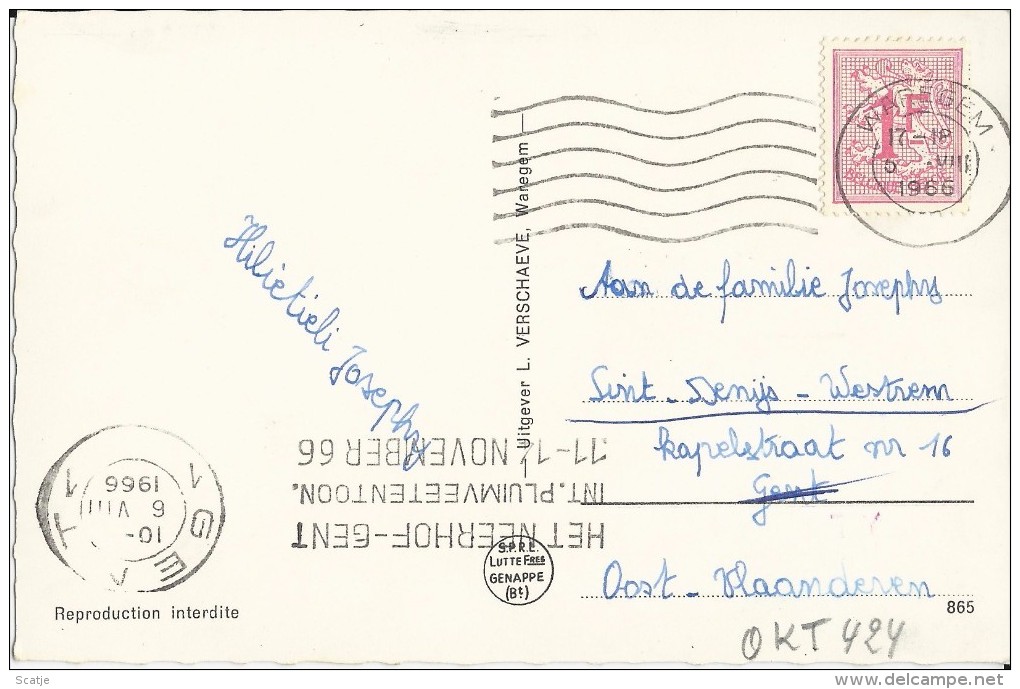 1F
WAREGEM
17-18
5 -VIII
1966
Uitgever L. VERSCHAEVE, Waregem
Aan de familie Josephy
Sint-Denijs-Westrem
kapelstraat nr 16
Gent
Oost-Vlaanderen
Josephy
HET NEERHOF-GENT
INT. PLUIMVEETENTOON.
11-14 NOVEMBER 66
1 GENT 1
10-
6 VIII
1966
S.P.R.L.
LUTTE FRES
GENAPPE
(Bt)
Reproduction interdite
865
OKT 424
Scatje
delcampe.net